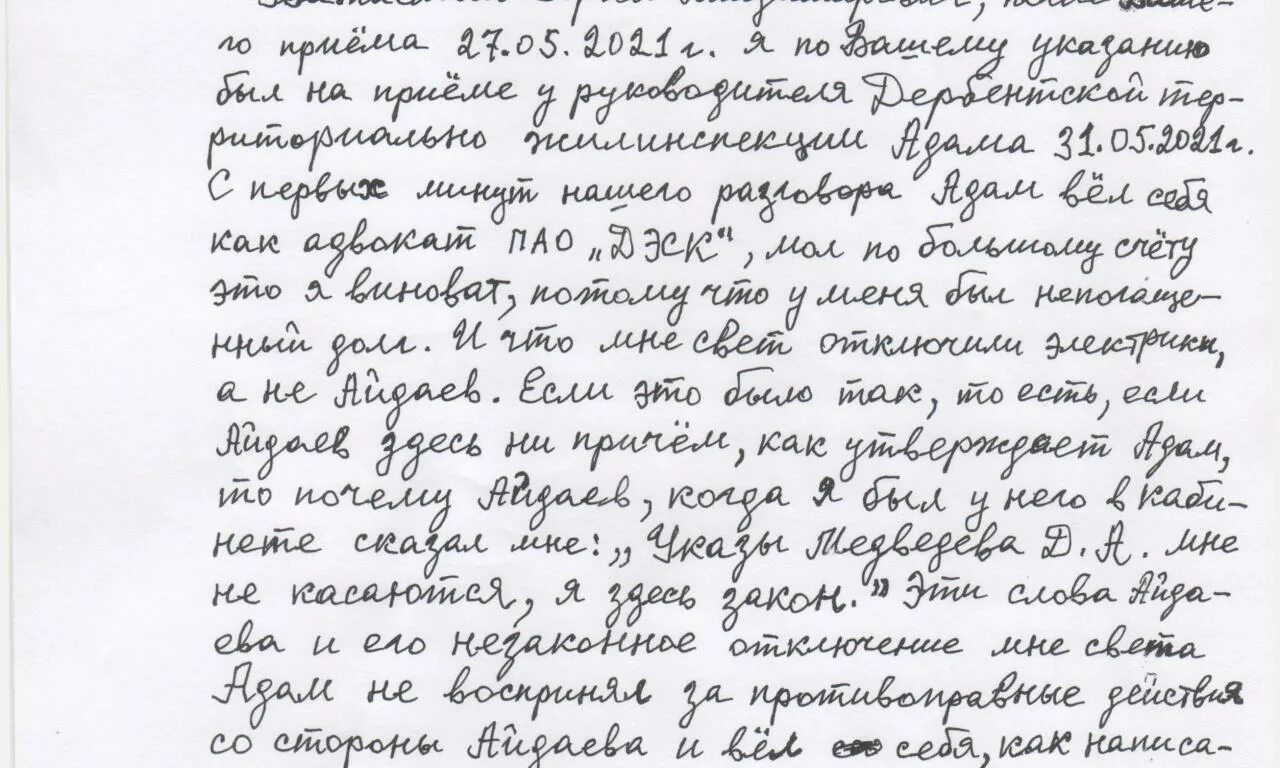 го приёма 27.05.2021г. я по Вашему указанию
был на приёме у руководителя Дербентской тер-
риториально жилинспекции Адама 31.05.2021г.
С первых минут нашего разговора Адам вёл себя
как адвокат ПАО „ДЭСК“, мол по большому счёту
это я виноват, потому что у меня был непогаще-
нный долг. И что мне свет отключили электрики,
а не Айдаев. Если это было так, то есть, если
Айдаев здесь ни причём, как утверждает Адам,
то почему Айдаев, когда я был у него в каби-
нете сказал мне: „Указы Медведева Д.А. мне
не касаются, я здесь закон.” Эти слова Айда-
ева и его незаконное отключение мне света
Адам не воспринял за противоправные действия
со стороны Айдаева и вёл себя, как написа-